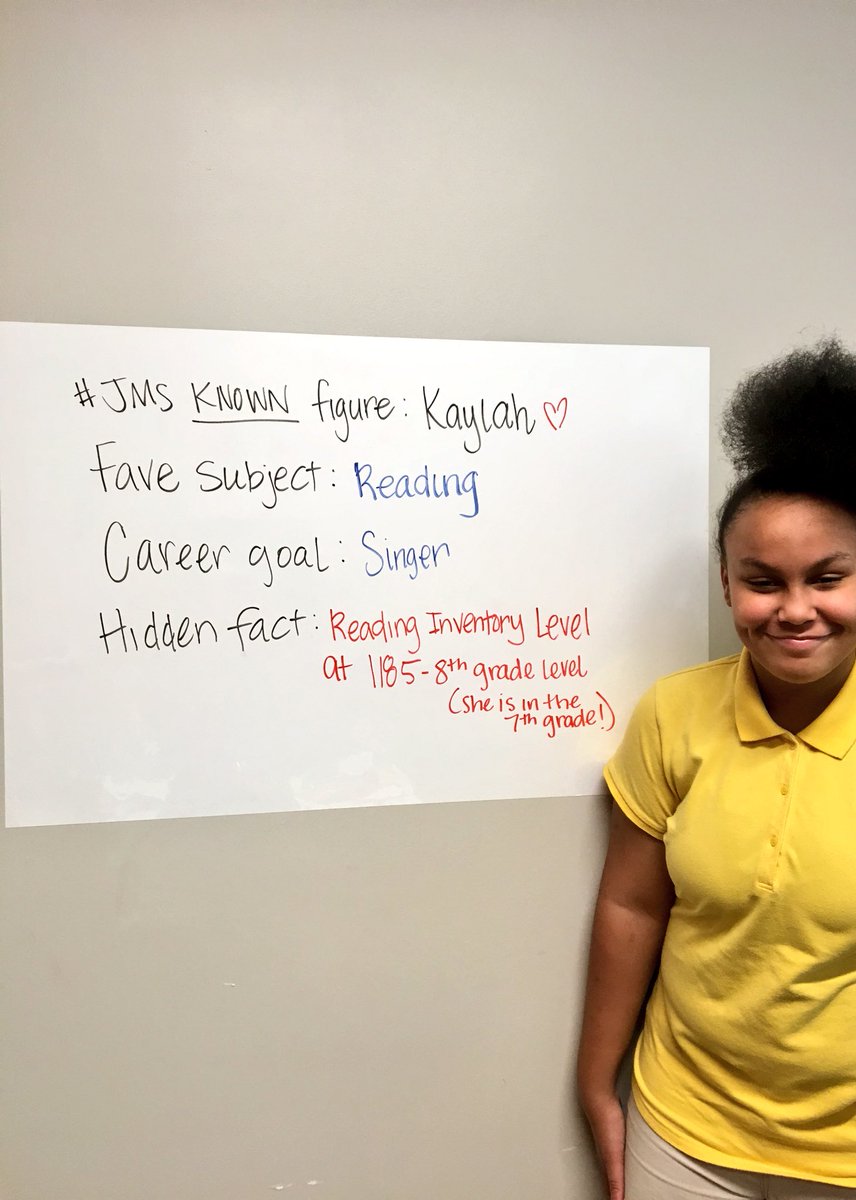 #JMS KNOWN figure: Kaylah ♡
Fave subject: Reading
Career goal: Singer
Hidden fact: Reading Inventory Level
at 1185-8th grade level
(she is in the
7th grade!)